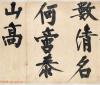 數清名
何啻泰
山高